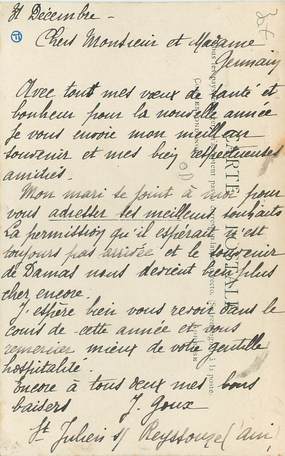 31 Décembre -
Chers Monsieur et Madame
Germain
Avec tout mes vœux de santé et
bonheur pour la nouvelle année
Je vous envoie mon meilleur
souvenir et mes bien respectueuses
amitiés.
Mon mari se joint à moi pour
vous adresser ses meilleurs souhaits
La permission qu'il espérait n'est
toujours pas arrivée et le souvenir
de Damas nous devient bien plus
cher encore.
J'espère bien vous revoir dans le
cours de cette année et vous
remercier mieux de votre gentille
hospitalité.
Encore à tous deux mes bons
baisers J. Goux
St Julien s/ Reyssouze (Ain)
CARTE POSTALE